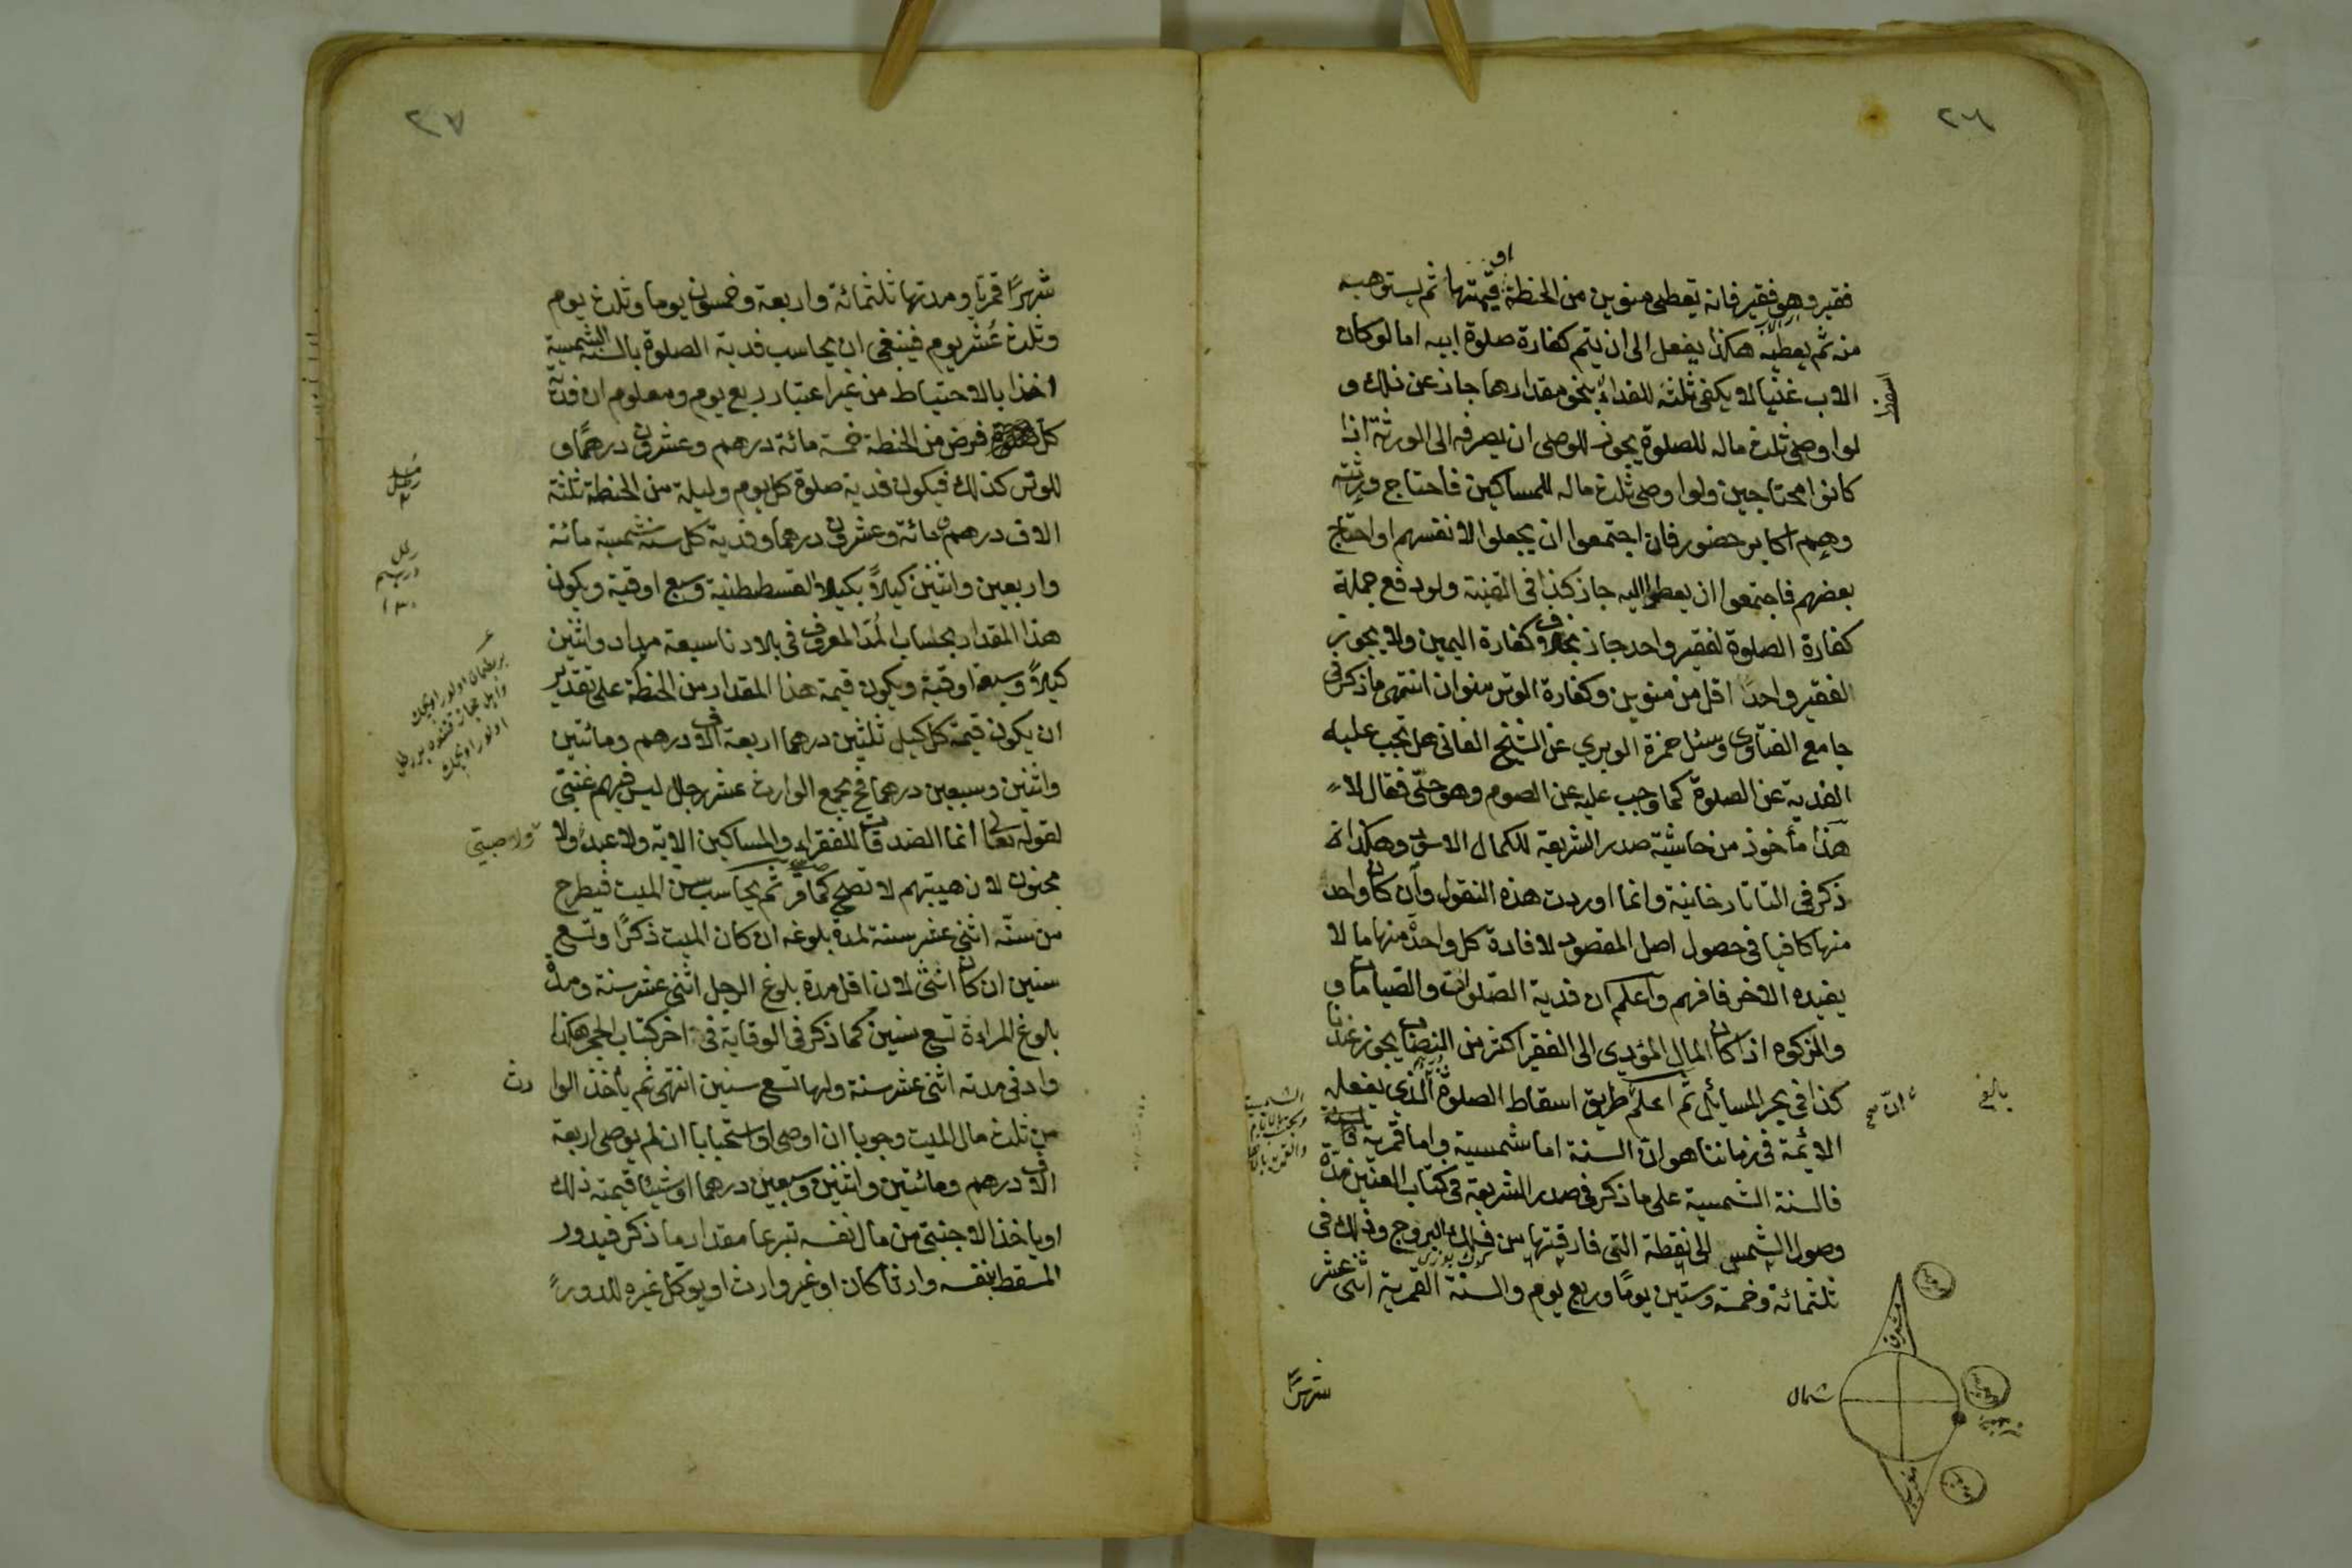 ٢٦
فقير وهو فقير فانه يعطى منوين من الحنطة او قيمتها ثم يستوهبه
منه ثم يعطيه هكذا يفعل الى ان يتم كفارة صلوة ابيه اما لو كان
الاب غنيا لا يكفى ثلثه للفداء بنحو مقدارها جاز عن ذلك و
لو اوصى ثلث ماله للصلوة يجوز للوصى ان يصرفه الى الورثة اذا
كانوا محتاجين ولو اوصى ثلث ماله للمساكين فاحتاج ورثته
وهم اكابر حضور فان اجتمعوا ان يجعلوا لانفسهم او احتاج
بعضهم فاجتمعوا ان يعطوا اليه جاز كذا فى القنية ولو دفع جملة
كفارة الصلوة لفقير واحد جاز بخلاف كفارة اليمين ولا يجوز
الفقير واحدا اقل من منوين وكفارة الوتر منوان انتهى ما ذكر فى
جامع الفتاوى وسئل حمزة الوبرى عن الشيخ الفانى هل تجب عليه
الفدية عن الصلوة كما وجب عليه عن الصوم وهو حى فقال لا
هذا مأخوذ من حاشية صدر الشريعة للكمال الاسود وهكذا انه
ذكر فى التاتارخانية وانما اوردت هذه النقول وان كان واحد
منها كافيا فى حصول اصل المقصود لافادة كل واحدة منها ما لا
يفيده الاخر فافهم واعلم ان فدية الصلوات والصيامات و
والزكوة اذا كان المال المؤدى الى الفقير اكثر من النصاب يجوز عندنا
كذا فى بحر المسائل ثم اعلم طريق اسقاط الصلوة الذى يفعله
الائمة فى زماننا هو ان السنة اما شمسية واما قمرية
فالسنة الشمسية على ما ذكر فى صدر الشريعة فى كتاب العنين مدة
وصول الشمس الى نقطة التى فارقتها من فلك البروج وذلك فى
ثلثمائة وخمسة وستين يوما وربع يوم والسنة القمرية اثنى عشر
شهرا
اسقط
ان صح
بالغ
مشرق
شمال
مغرب
٢٧
شهرًا قمريا ومدتها ثلثمائة واربعة وخمسون يوما وثلث يوم
وثلث عشر يوم فينبغى ان يحاسب فدية الصلوة بالسنة الشمسية
اخذا بالاحتياط من غير اعتبار ربع يوم ومعلوم ان فدية
كل فرض من الحنطة خمسة مائة درهم وعشرون درهما و
للوتر كذلك فيكون فدية صلوة كل يوم وليلة من الحنطة ثلثة
الاف درهم ومائة وعشرون درهما وفدية كل سنة شمسية مائة
واربعين واثنين كيلاً بكيل القسطنطنية وسبع اوقية ويكون
هذا المقدار بحساب المد المعروف فى بلادنا سبعة مداد واثنين
كيلاً وسبعة اوقية ويكون قيمة هذا المقدار من الحنطة على تقدير
ان يكون قيمة كل كيل ثلثين درهما اربعة الاف درهم ومائتين
واثنين وسبعين درهما فح يجمع الوارث عشر رجال ليس فيهم غنى
لقوله تعالى انما الصدقات للفقراء والمساكين الاية ولا عبد ولا
مجنون لان هبتهم لا تصح كما مر ثم يحاسب سن الميت فيطرح
من سنه اثنى عشر سنة لمدة بلوغه ان كان الميت ذكرًا وتسع
سنين ان كان انثى لان اقل مدة بلوغ الرجل اثنى عشر سنة ومدة
بلوغ المراءة تسع سنين كما ذكر فى الوقاية فى اخر كتاب الحجر هكذا
وادنى مدته اثنى عشر سنة ولها تسع سنين انتهى ثم يأخذ الوا
رث
من ثلث مال الميت وجوبا ان اوصى او استحبابا ان لم يوص اربعة
الاف درهم ومائتين واثنين وسبعين درهما او شيئا قيمته ذلك
او ياخذ الاجنبى من مال نفسه تبرعا مقدار ما ذكر فيدور
المسقط بنفسه وارثا كان او غير وارث او يوكل غيره للدور
ولا صبى
رطل
درهم
١٣٠